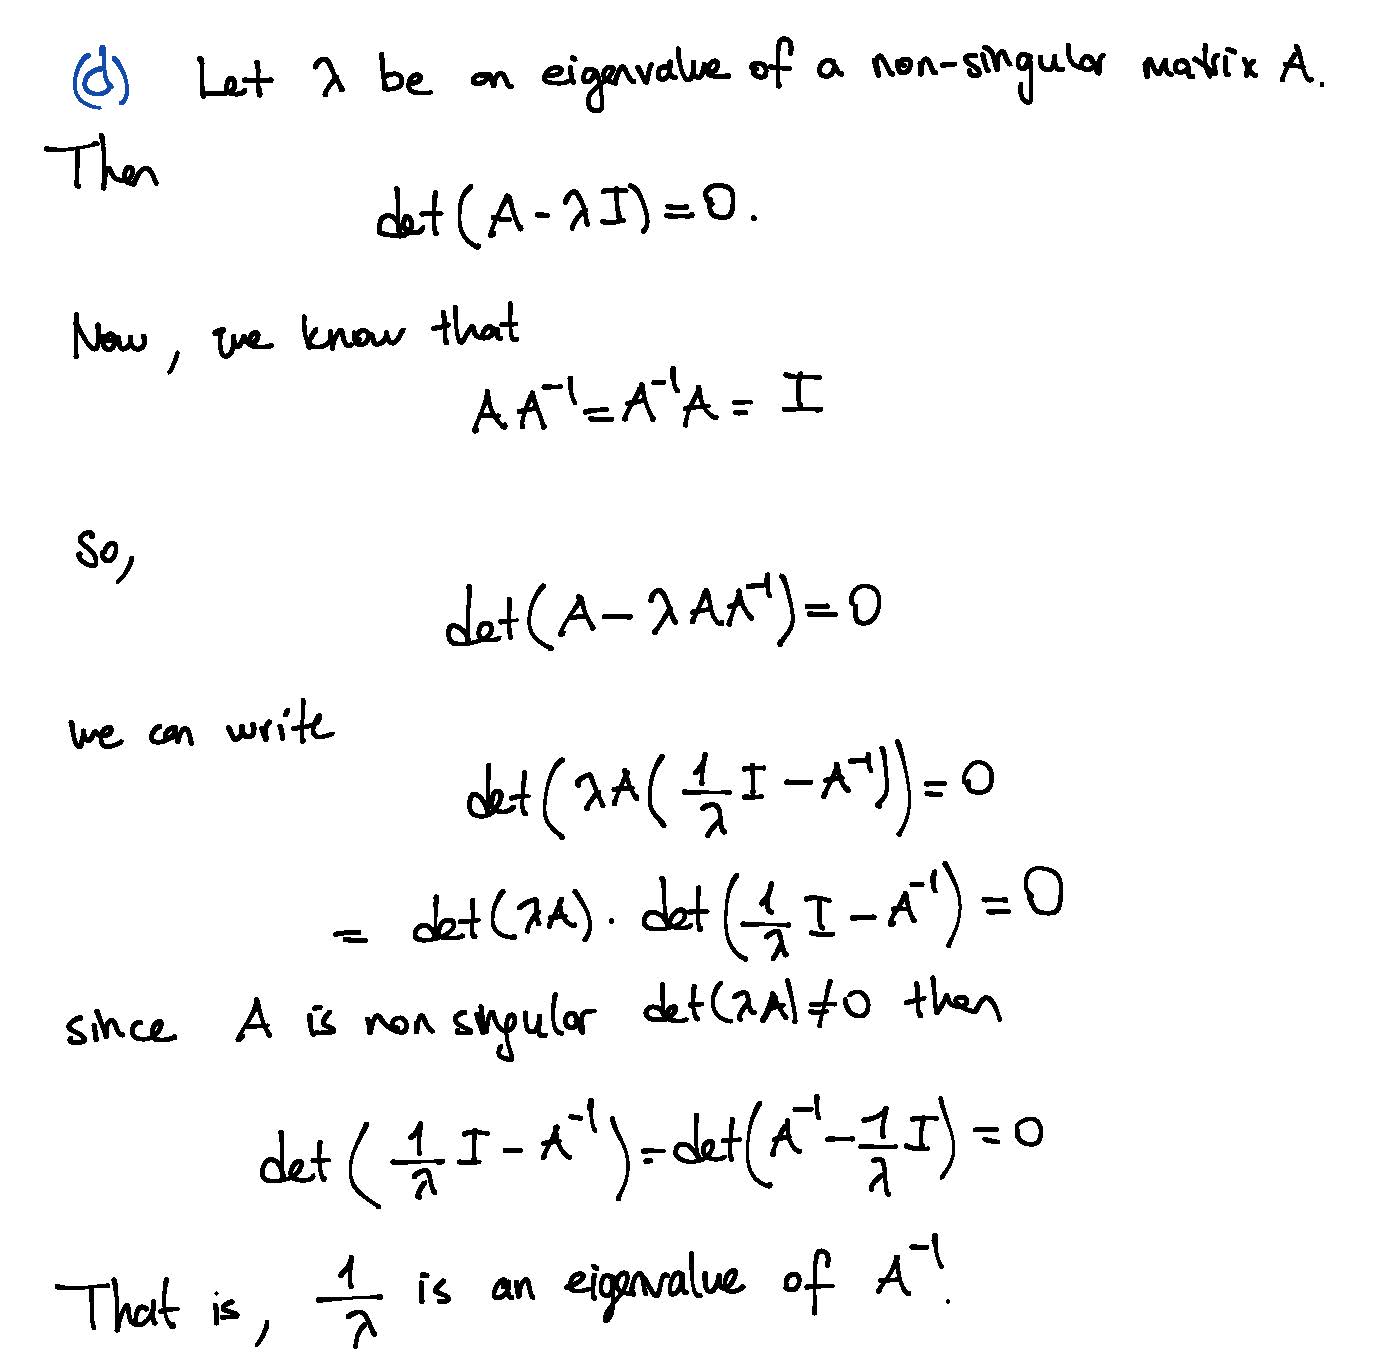 (d) Let λ be an eigenvalue of a non-singular matrix A.
Then
det(A-λI)=0.
Now, we know that
AA⁻¹=A⁻¹A=I
So,
det(A-λAA⁻¹)=0
we can write
det(λA(1/λ I - A⁻¹))=0
= det(λA). det(1/λ I - A⁻¹) = 0
since A is non singular det(λA)≠0 then
det(1/λ I - A⁻¹)=det(A⁻¹-1/λ I)=0
That is, 1/λ is an eigenvalue of A⁻¹.